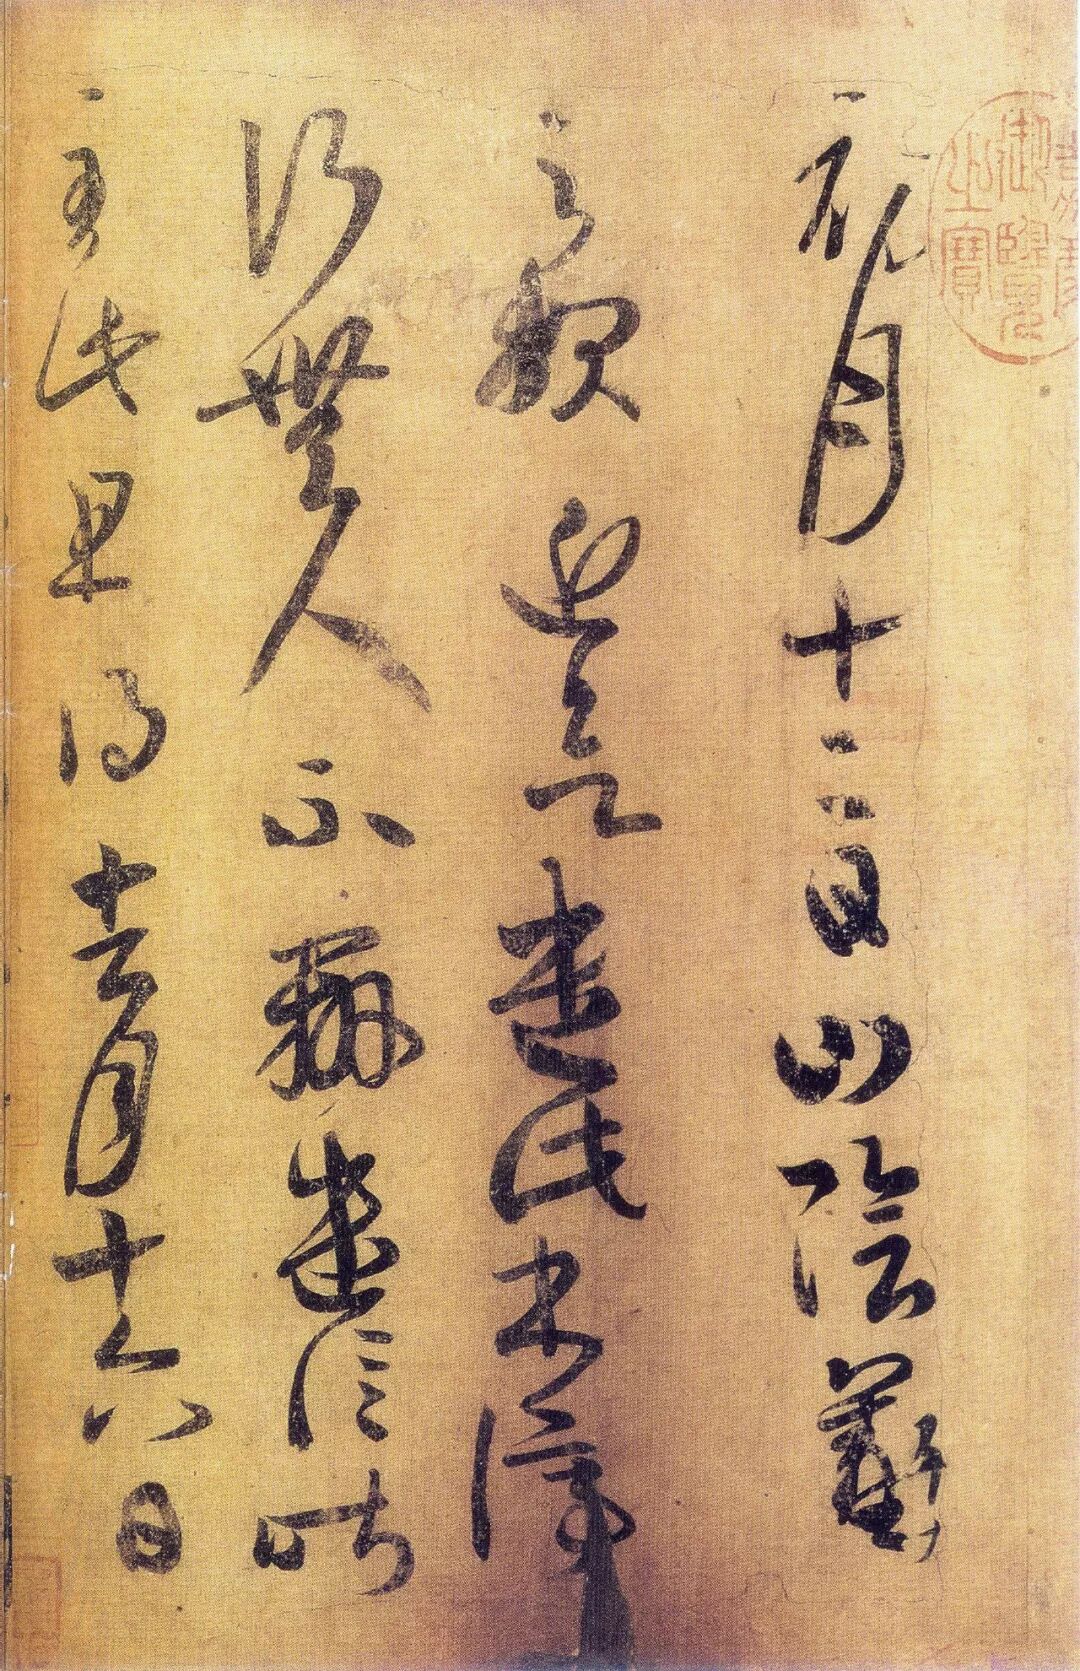 嘉慶御覽之寶
初月十二日山陰羲
之報近欲遣此書停
行無人不辦遣信昨
至此且得去月十六日